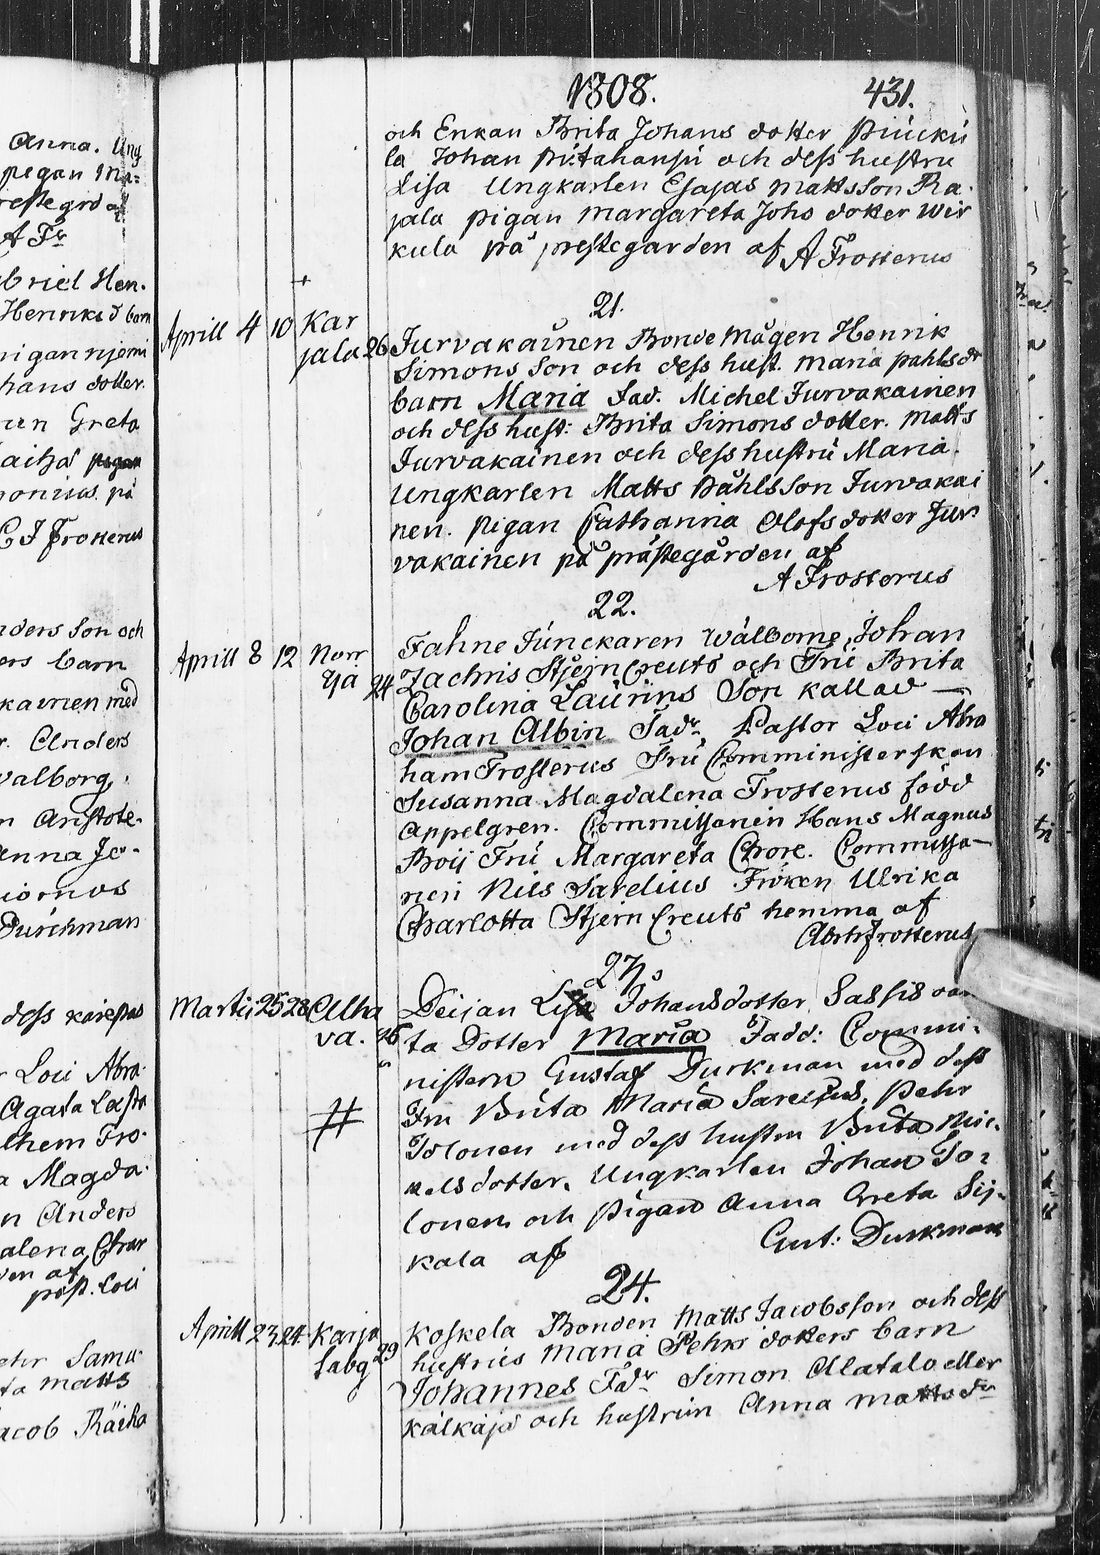 Anna. Ung
pigan Ma=
restegrd af
A Fr
briel Hen.
Henriks d barn
pigan njemi
hans dotter.
Greta
pigan
på
C J Frosterus
nders Son och
ers barn
kainen med
r. Anders
valborg,
n Aristote-
enna Jo-
Durchman
dess
r Loci Abra-
Agata
lhem Fro-
a Magda-
n Anders
alena Char
den af
past. Loci
ehr Samu
ta Matts
acob Räihä
1808. 431.
och Enkan Brita Johans dotter Piucku
la Johan Pütahansu och dess hustru
Lisa Ungkarlen Esajas Mattsson Ra-
jala pigan Margareta Johs dotter Wir
kula på prestegården af A Frosterus
21.
Aprill 4 10 Kar
jala 26
Jurvakainen Bonde Mågen Henrik
Simons Son och dess hust. Maria Pahls dr
barn Maria Fad. Michel Jurvakainen
och dess hust: Brita Simons dotter. Matts
Jurvakainen och dess hustru Maria.
Ungkarlen Matts Påhlsson Jurvakai
nen. Pigan Catharina Olofs doter Jur
vakainen på prästegården af
A Frosterus
22.
Aprill 8 12 Norr
24
Fahne Junckaren Wälborne Johan
Zachris Stjerncreuts och Fru Brita
Carolina Laurins Son kallad —
Johan Albin Fadr, Pastor Loci Abra
ham Frosterus Fru Comministerskan
Susanna Magdalena Frosterus född
Appelgren. Committjonen Hans Magnus
Boij Fru Margareta Chore. Committjo—
nen Nils Sarelius Fröken Ulrika
Charlotta Stjerncreuts hemma af
Abrh Frosterus
23.
Martii 25 28 Alha
va. 46
#
Deijan Lisa Johansdotter Sassis oäk
ta Dotter Maria Fadd: Commi-
nistern Gustaf Durkman med dess
Fru Brita Maria Sarelius, Pehr
Tolonen med dess hustru Brita Mic.
kelsdotter. Ungkarlen Johan To=
lonen och Pigan Anna Greta Sij-
kala af Gust: Durkman
24.
Aprill 23 24 Karja
labg 29
Koskela Bonden Matts Jacobsson och dess
hustrus Maria Pehrs dotters barn
Johannes Fadr Simon Alatalo eller
Kälkäjä och hustrun Anna Matts dr